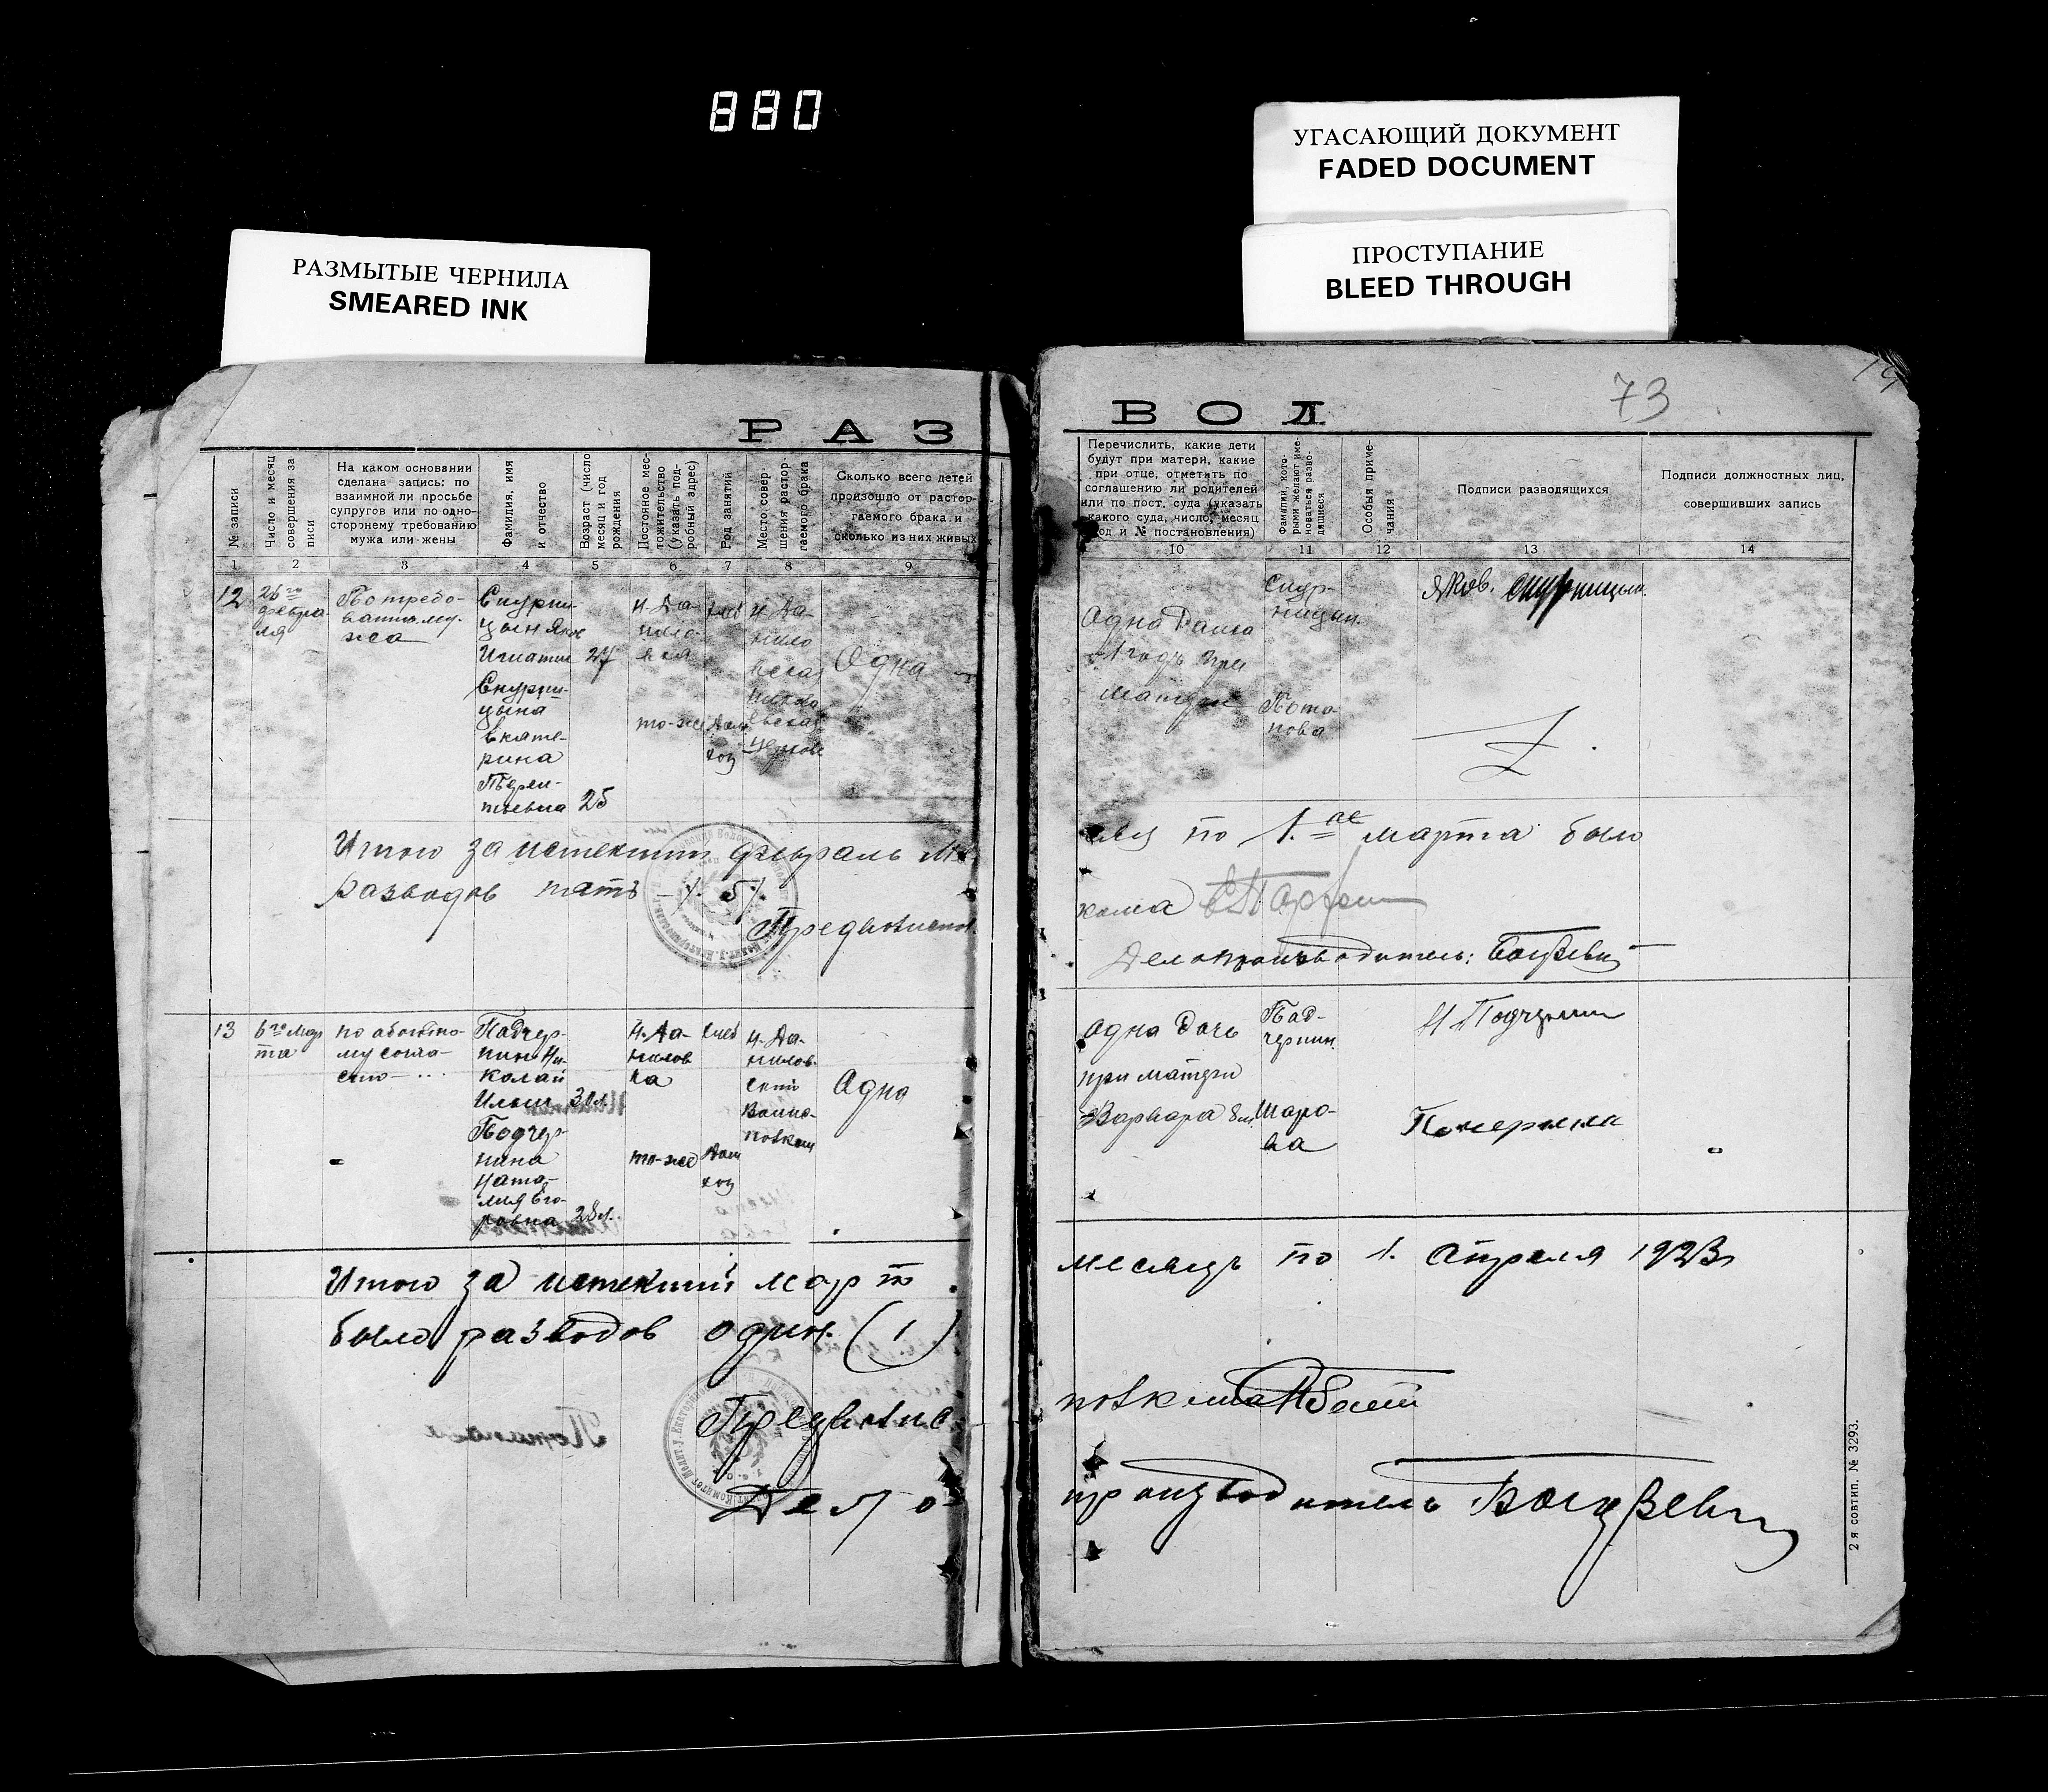 880
УГАСАЮЩИЙ ДОКУМЕНТ
FADED DOCUMENT
ПРОСТУПАНИЕ
BLEED THROUGH
РАЗМЫТЫЕ ЧЕРНИЛА
SMEARED INK
73
РАЗ
ВОД
№ записи
Число и месяц
совершения за
писи
На каком основании
сделана запись: по
взаимной ли просьбе
супругов или по одно-
сторонему требованию
мужа или жены
Фамилия, имя
и отчество
Возраст (число
месяц и год
рождения
Постоное мес-
тожительство
(указать под-
робный адрес)
Род занятий
Место совер-
шения растор-
гаемого брака
Сколько всего детей
произошло от растор-
гаемого брака и
сколько из них живых
Перечислить, какие дети
будут при матери, какие
при отце, отметить по
соглашению ли родителей
или по пост. суда (указать
какого суда, число, месяц
год и № постановления)
Фамилии, кото-
рыми желают име-
новаться разво-
дящиеся
Особыя приме-
чания
Подписи разводящихся
Подписи должностных лиц,
совершивших запись
1 2 3 4 5 6 7 8 9
10 11 12 13 14
12
26го
февра
ля
По требо-
ванию му-
жа
Снурни-
цын Яков
Игнатие 27
Снурни-
цына
Екате-
рина
Терен-
тьевна 25
Н. Да-
нило-
вка
то-же
хлеб
Дом
хоз
Н. Да-
нило
вская
Церкв
Одна
Одна
1 годъ при
матери
Снур-
ницын
Пота-
пова
Яков. Снурницын
Итого за истекший февраль ме
сяц по 1.ое марта было
разводов пять ./. 5 ./.
Предволисп
кома
Делопроизводитель:
13
6го мар
та
по обоюдно-
му согла-
сию
Падчер-
нин Ни-
колай
Ильич 30 л.
Подчер-
нина
Ната-
лия Его-
ровна 28 л.
Н. Да-
нилов
ка
то-же
хлеб
Дом
хоз
Н. Да-
нилов-
ский
Волис-
полком
Одна
Одна дочь
при матери
Варвара 8 л.
Под-
чернин
Шаро-
ва
Н Подчернин
Итого за истекший март
месяцъ по 1. Апреля 1923
было разводов один. (1)
Предволис
полкома
Дело
производитель
2 я совтип. № 3293.